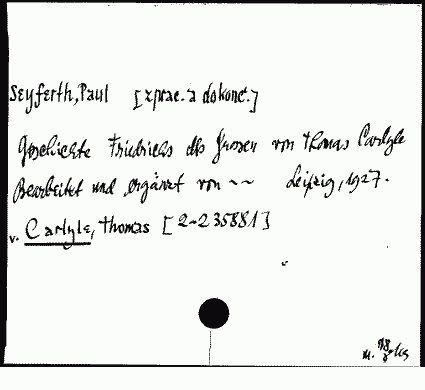 Seyferth, Paul [zprac. a dokonč.]
Geschichte Friedrichs des Grossen von Thomas Carlyle
Bearbeitet und ergänzt von ~~ Leipzig, 1927.
v. Carlyle, Thomas [2-235881]